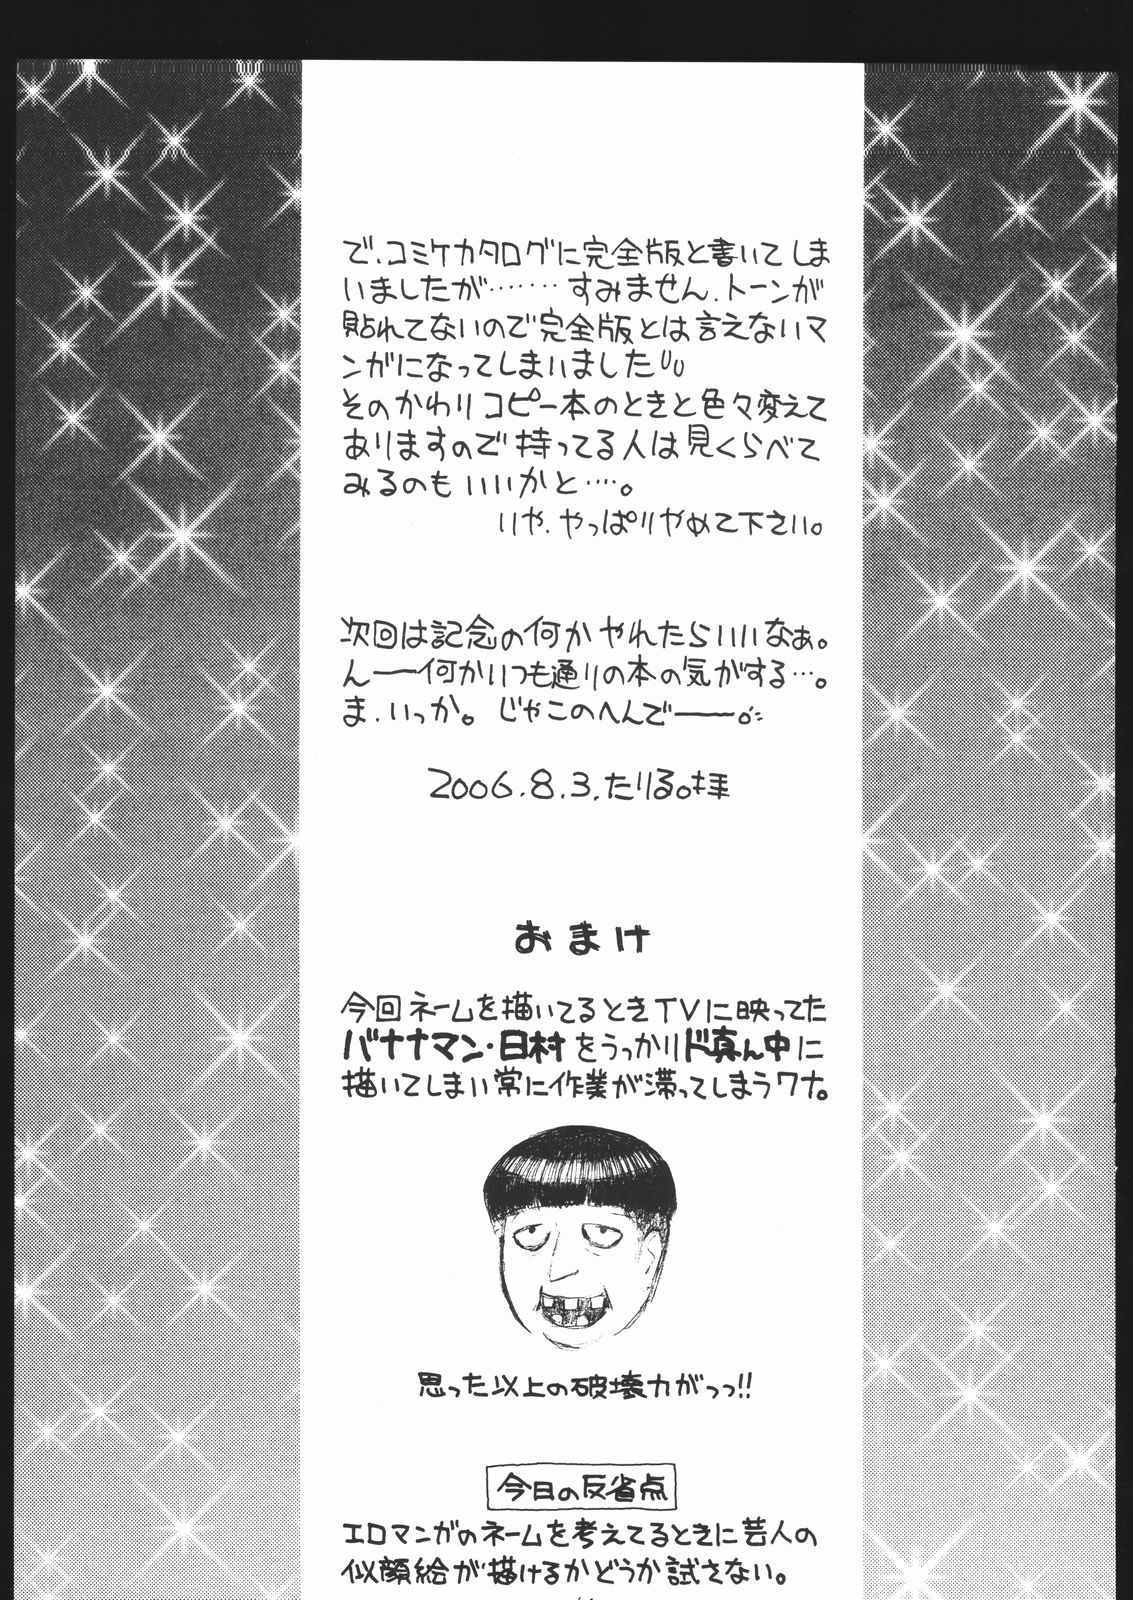 で、コミケカタログに完全版と書いてしま
いましたが……… すみません、トーンが
貼れてないので完全版とは言えないマ
ンガになってしまいました
そのかわりコピー本のときと色々変えて
ありますので持ってる人は見くらべて
みるのもいいかと…。
いや、やっぱりやめて下さい。
次回は記念の何かやれたらいいなぁ。
んー何かいつも通りの本の気がする…。
ま、いっか。 じゃこのへんでー。
2006.8.3.たりる。様
おまけ
今回ネームを描いてるときTVに映ってた
バナナマン・日村をうっかりド真ん中に
描いてしまい常に作業が滞ってしまうワナ。
思った以上の破壊力がっっ!!
今日の反省点
エロマンガのネームを考えてるときに芸人の
似顔絵が描けるかどうか試さない。